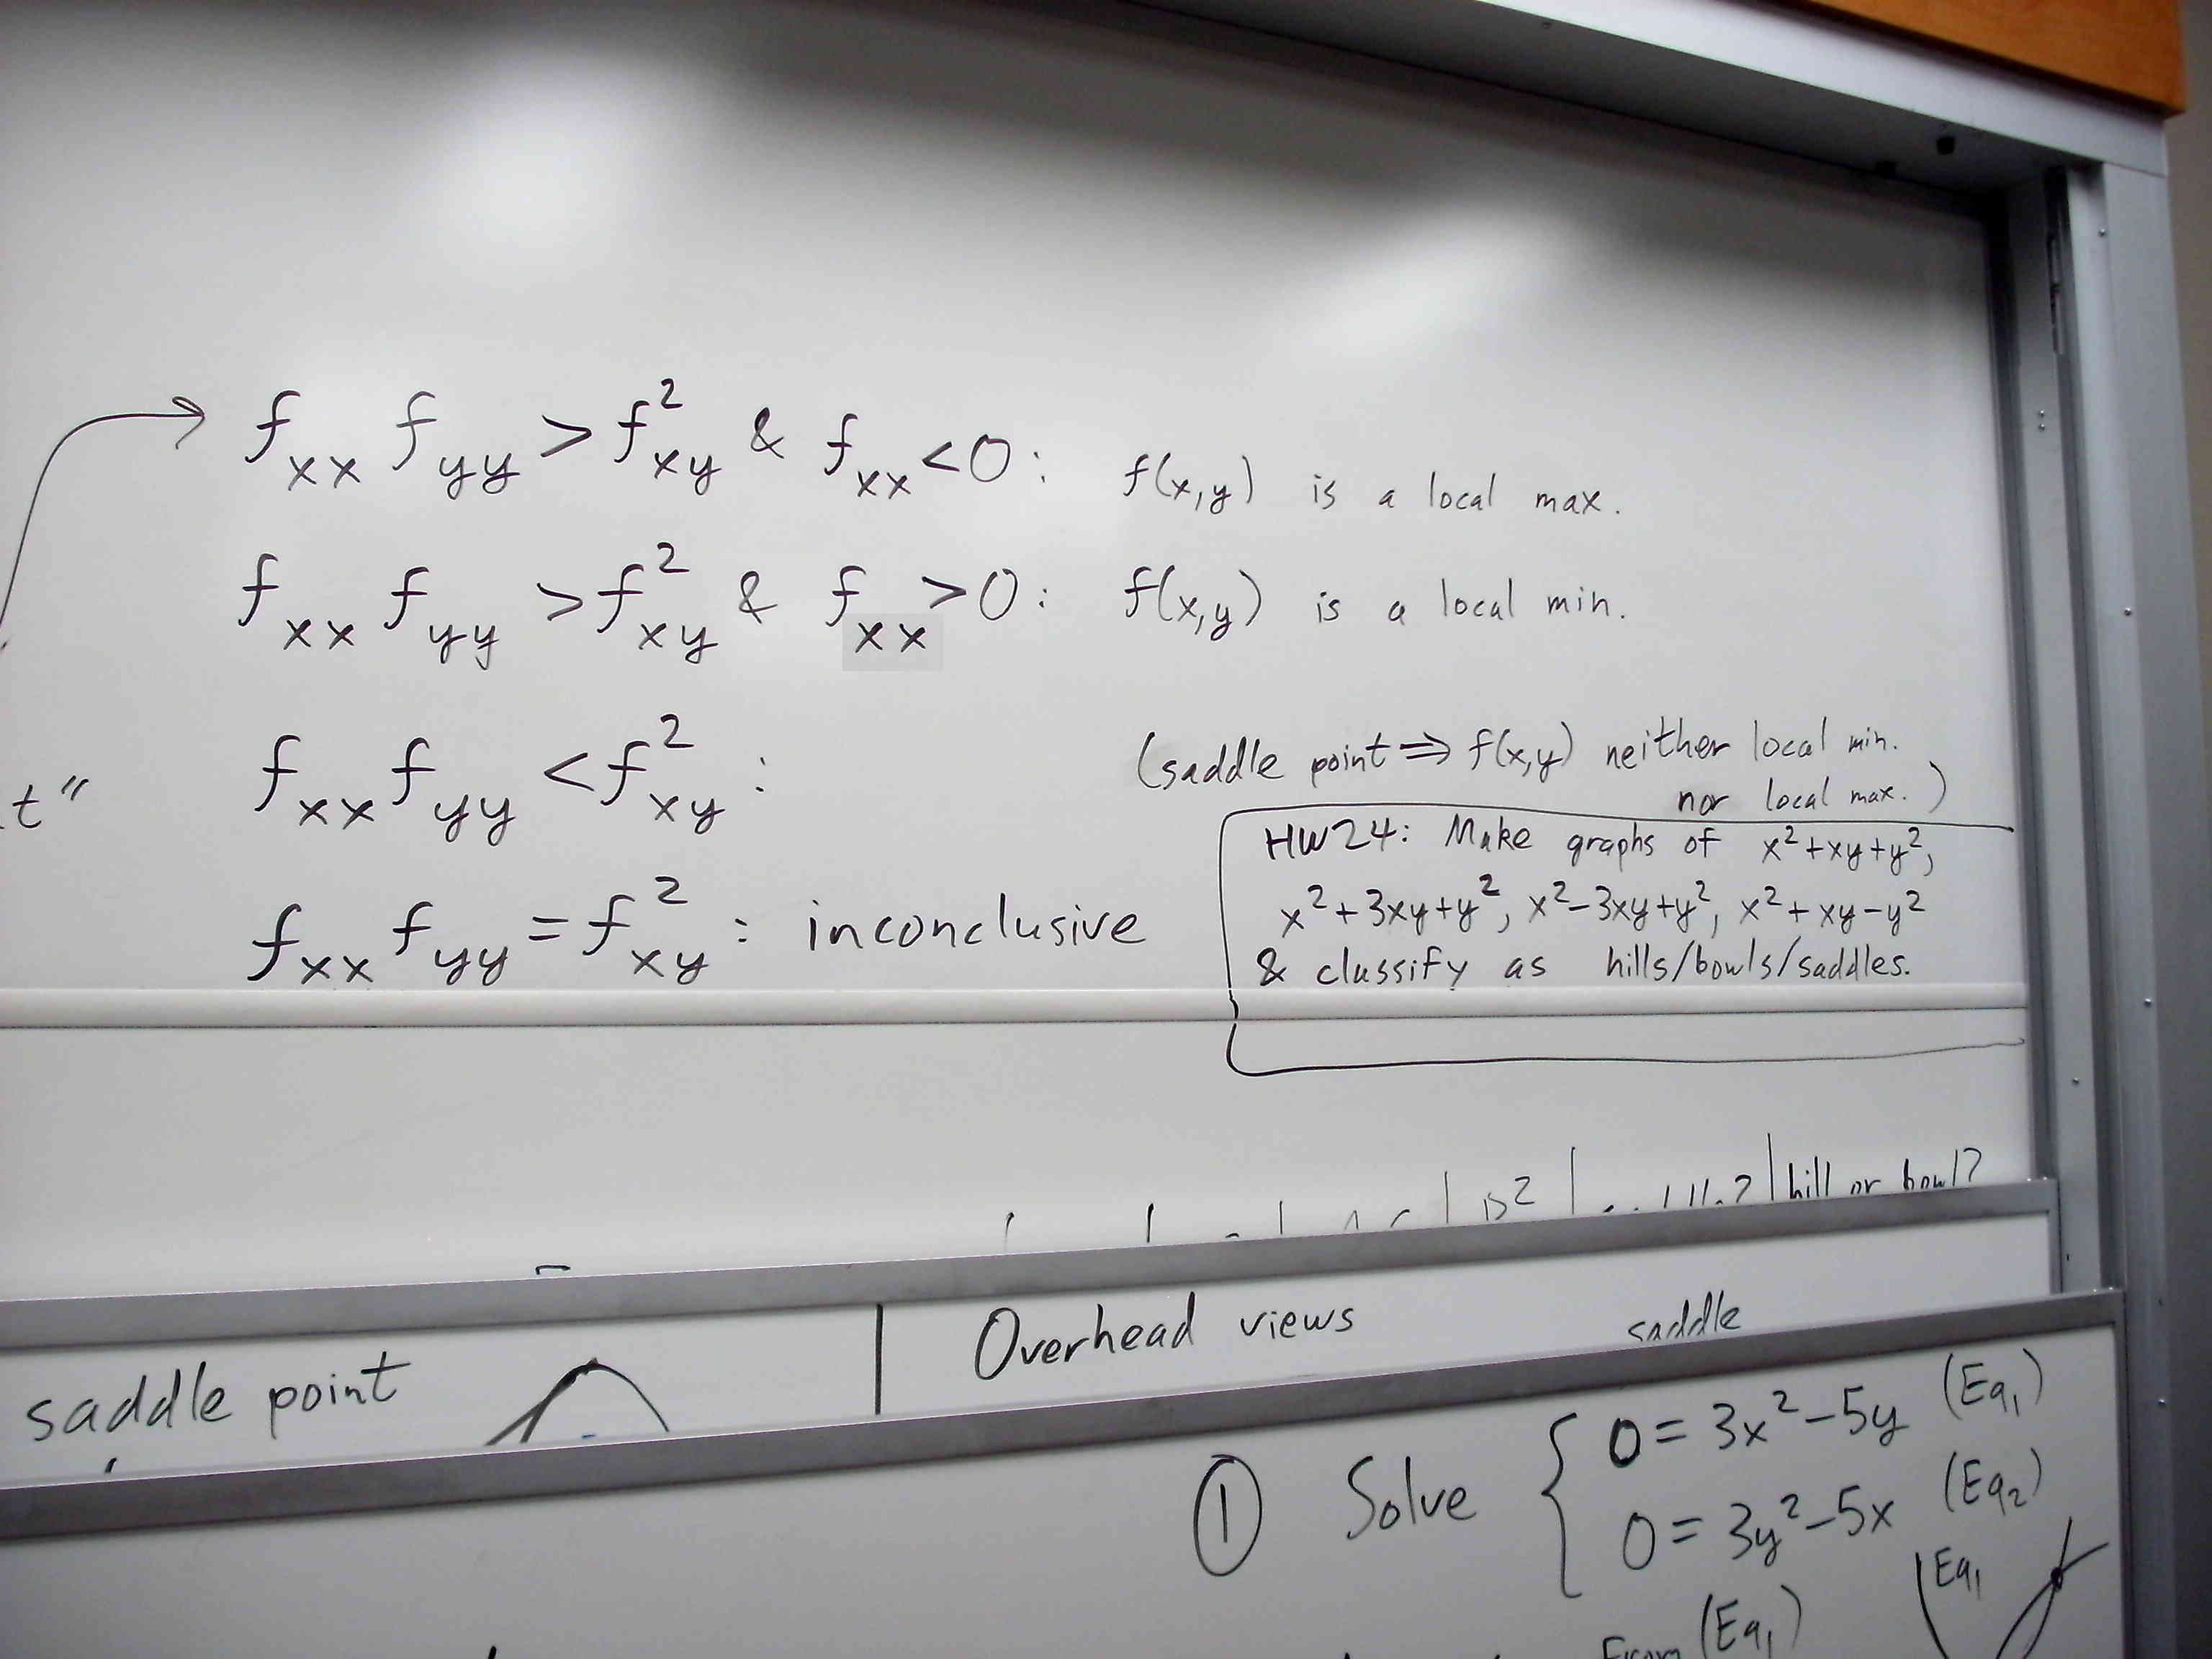 f_xx f_yy > f²_xy & f_xx < 0 : f(x,y) is a local max.
f_xx f_yy > f²_xy & f_xx > 0 : f(x,y) is a local min.
f_xx f_yy < f²_xy : (saddle point ⇒ f(x,y) neither local min.
nor local max.)
t"
HW24: Make graphs of x²+xy+y²,
x²+3xy+y², x²-3xy+y², x²+xy-y²
& classify as hills/bowls/saddles.
f_xx f_yy = f²_xy : inconclusive
hill or bowl?
saddle point
Overhead views saddle
① Solve { 0 = 3x²-5y (Eq₁)
0 = 3y²-5x (Eq₂)
Eq₁
From (Eq₁)